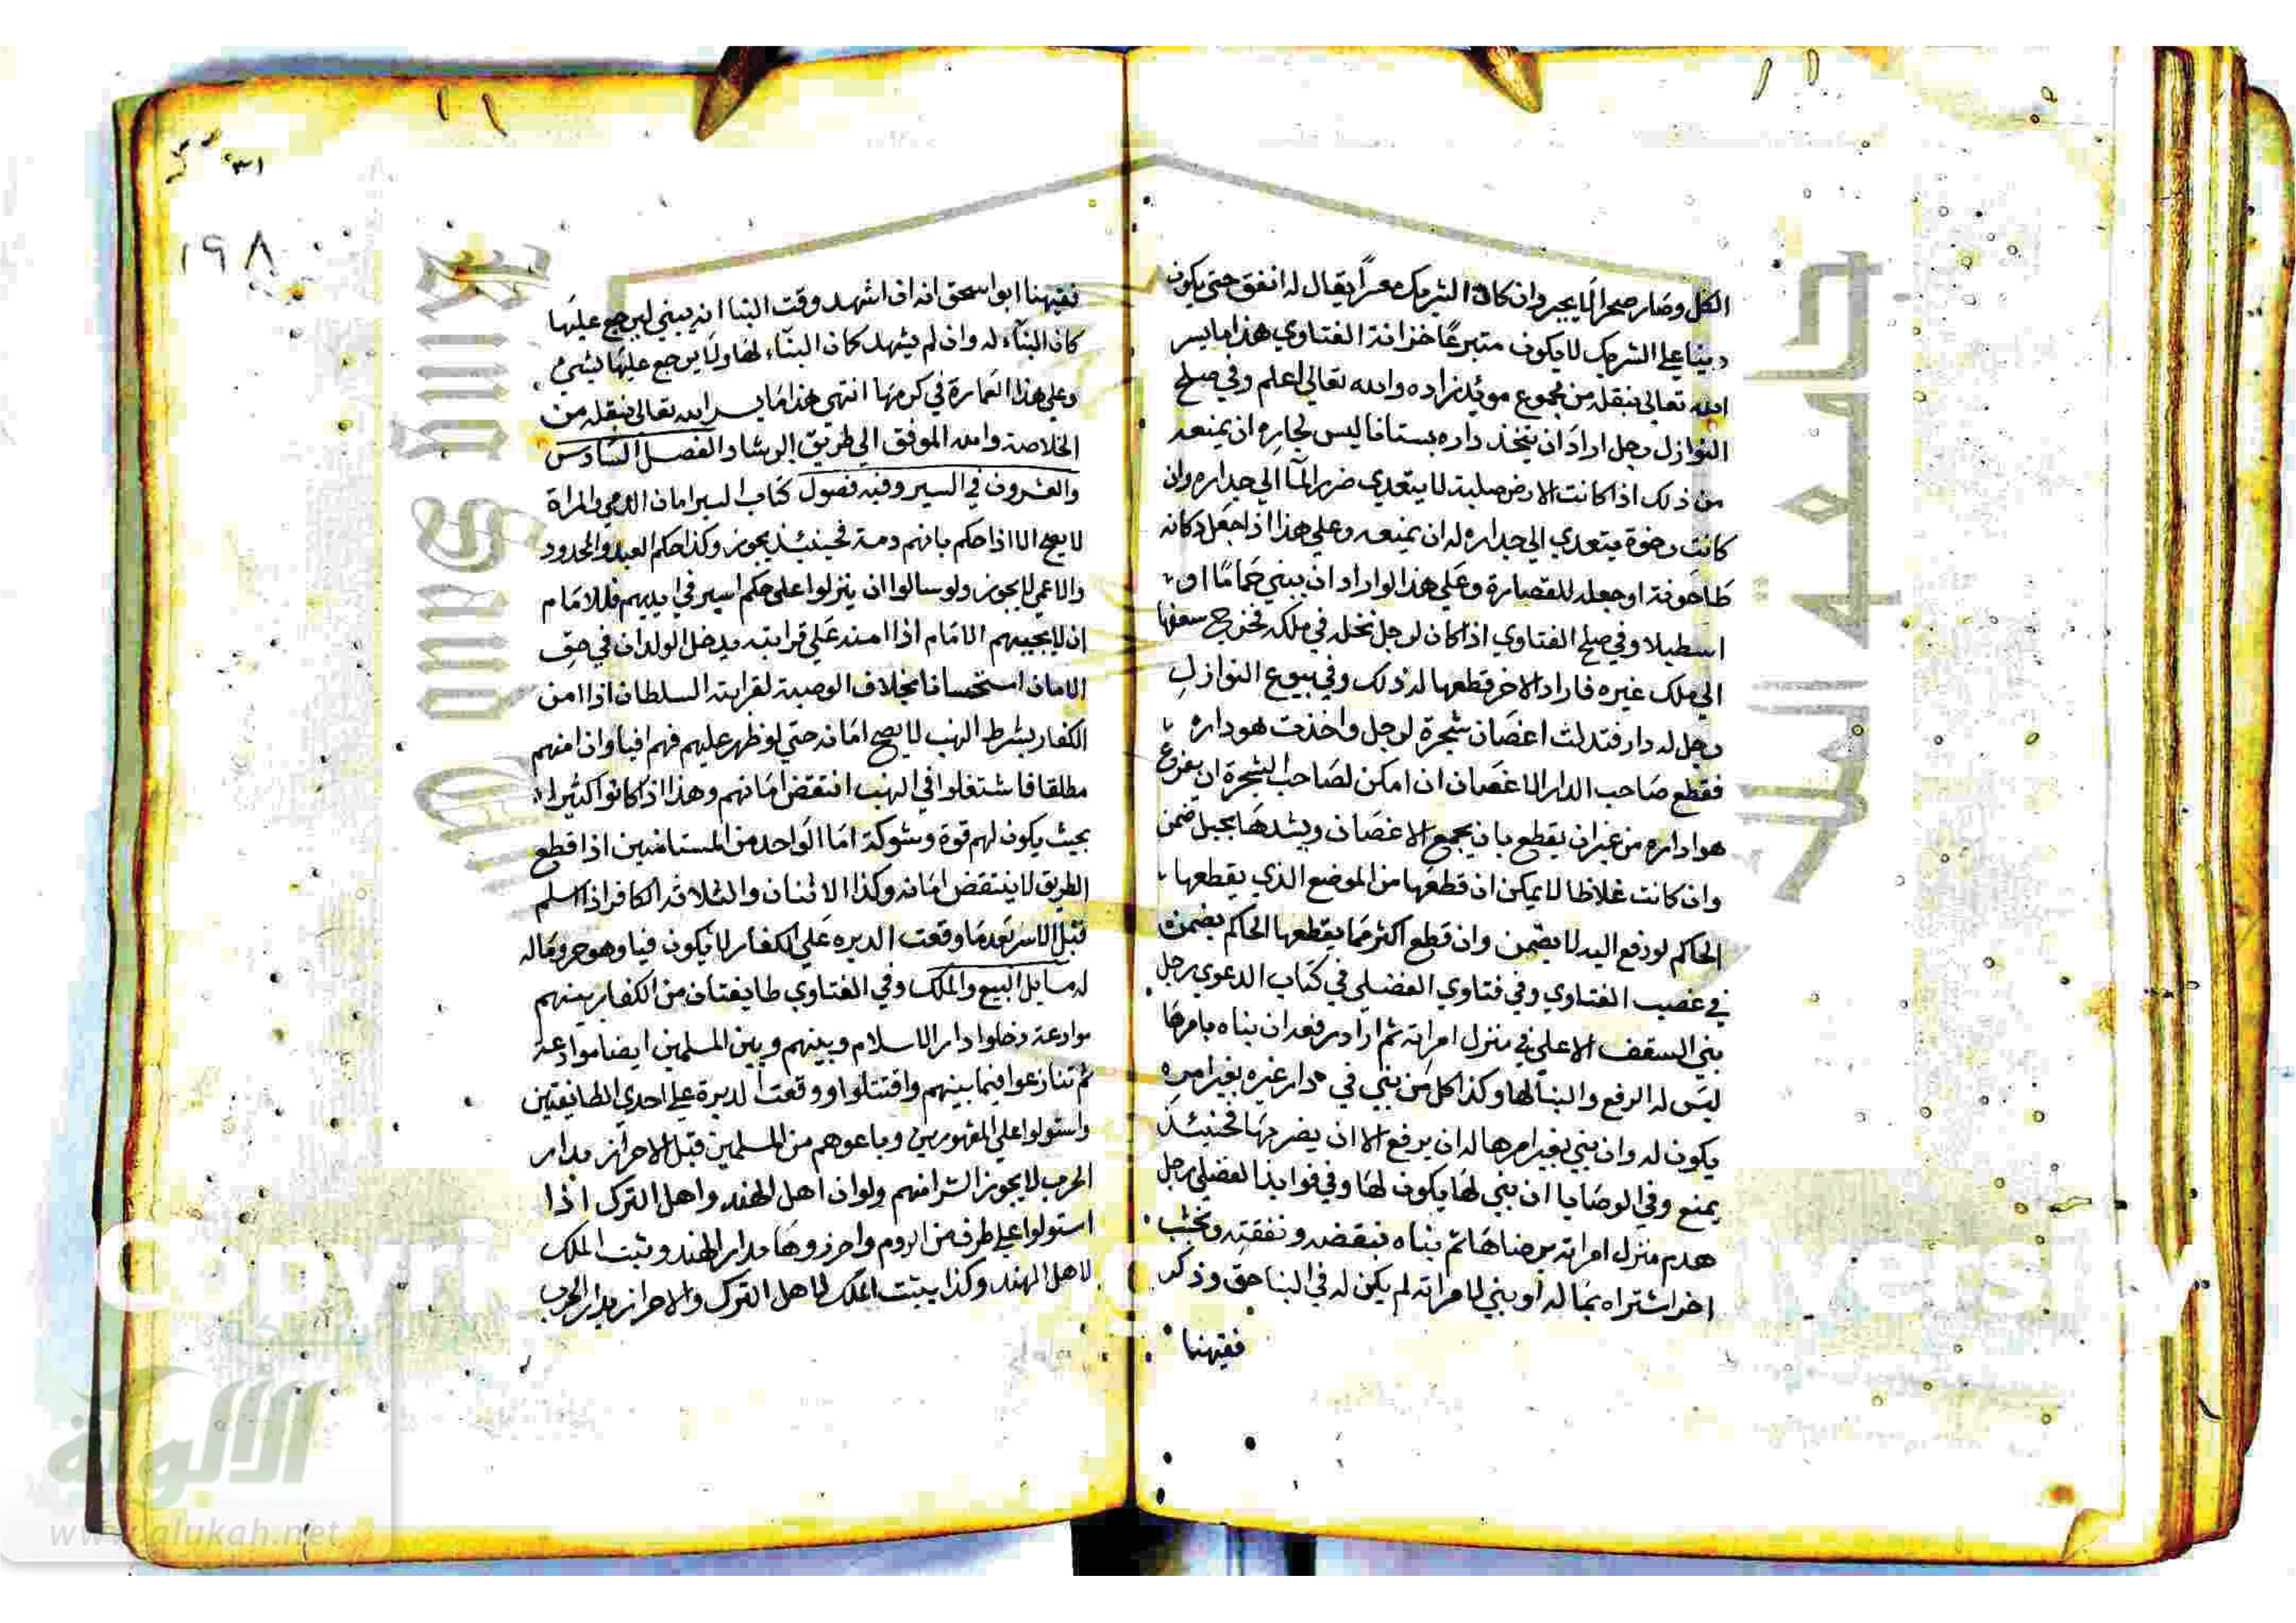 الكل وصار صحرا لا يجبر وان كان الشريك معسرا يقال له انفق حتى يكون
دينا على الشريك لا يكون متبرعا خزانة الفتاوي هذا ما يسر
الله تعالى بنقله من مجموع مويد زاده والله تعالى اعلم وفي صلح
النوازل رجل اراد ان يتخذ داره بستانا ليس لجاره ان يمنعه
من ذلك اذا كانت الارض صلبة لا يتعدي ضرر الما الي جداره وان
كانت رخوة يتعدي الي جداره له ان يمنعه وعلي هذا اذا جعل دكانه
طاحونة او جعله للقصارة وعلي هذا لو اراد ان يبني حماما او
اسطبلا وفي صلح الفتاوي اذا كان لرجل نخلة في ملكه فخرج سعفها
الي ملك غيره فاراد الاخر قطعها له ذلك وفي بيوع النوازل
رجل له دار فتدلت اغصان شجرة لرجل واخذت هو داره
فقطع صاحب الدار الاغصان ان امكن لصاحب الشجرة ان يفرغ
هوا داره من غير ان يقطع بان يجمع الاغصان ويشدها بحبل ضمن
وان كانت غلاظا لا يمكن ان قطعها من الموضع الذي يقطعها
الحاكم لو رفع اليه لا يضمن وان قطع اكثر مما يقطعها الحاكم يضمن
في غصب الفتاوي وفي فتاوي الفضلي في كتاب الدعوي رجل
بني السقف الاعلي في منزل امراته ثم اراد رفعه ان بناه بامرها
ليس له الرفع والبنا لها وكذا كل من بني في دار غيره بغير امره
يكون له وان بني بغير امرها له ان يرفع الا ان يضر بها فحينئذ
يمنع وفي الوصايا ان بني لها يكون لها وفي فوايد الفضلي رجل
هدم منزل امراته برضاها ثم بناه بنقضه ونفقته وخشب
اخر اشتراه بماله او بني لامراته لم يكن له في البنا حق وذكر
فقيهنا
١٩٨
فقيهنا ابو اسحق انه ان اشهد وقت البنا انه يبني ليرجع عليها
كان البناء له وان لم يشهد كان البناء لها ولا يرجع عليها بشئ
وعلي هذا العمارة في كرمها انتهي هذا ما يسر الله تعالى بنقله من
الخلاصة والله الموفق الي طريق الرشاد الفصل السادس
والعشرون في السير وفيه فصول كتاب السير امان الذمي والمراة
لا يصح الا اذا حكم بانهم ذمة فحينئذ يجوز وكذا حكم العبد والمحدود
والاعمي لا يجوز ولو سالوا ان ينزلوا علي حكم اسير في ايديهم فللامام
ان لا يجيبهم الامام اذا امنه علي قرابته يدخل الولدان في حق
الامان استحسانا بخلاف الوصية لقرابته السلطان اذا امن
الكفار بشرط النهب لا يصح امانه حتي لو ظهر عليهم فهم افيا وان امنهم
مطلقا فاشتغلوا في النهب انتقض امانهم وهذا اذا كانوا كثيرا
بحيث يكون لهم قوة وشوكة اما الواحد من المستامنين اذا قطع
الطريق لا ينتقض امانه وكذا الاثنان والثلاثة الكافر اذا اسلم
قبل الاسر بعد ما وقعت الدبره علي الكفار لا يكون فيا وهو حر وماله
له مسايل البيع والملك وفي الفتاوي طايفتان من الكفار بينهم
موادعة دخلوا دار الاسلام وبينهم وبين المسلمين ايضا موادعة
ثم تنازعوا فيما بينهم واقتتلوا ووقعت الدبرة علي احدي الطايفتين
واستولوا علي المقهورين وباعوهم من المسلمين قبل الاحراز بدار
الحرب لا يجوز الشرا منهم ولو ان اهل الهند واهل الترك اذا
استولوا علي طرف من الروم واحرزوها بدار الهند وثبت الملك
لاهل الهند وكذا يثبت الملك لاهل الترك والاحراز بدار الحرب
جامعة الملك
الألوكة
www.alukah.net